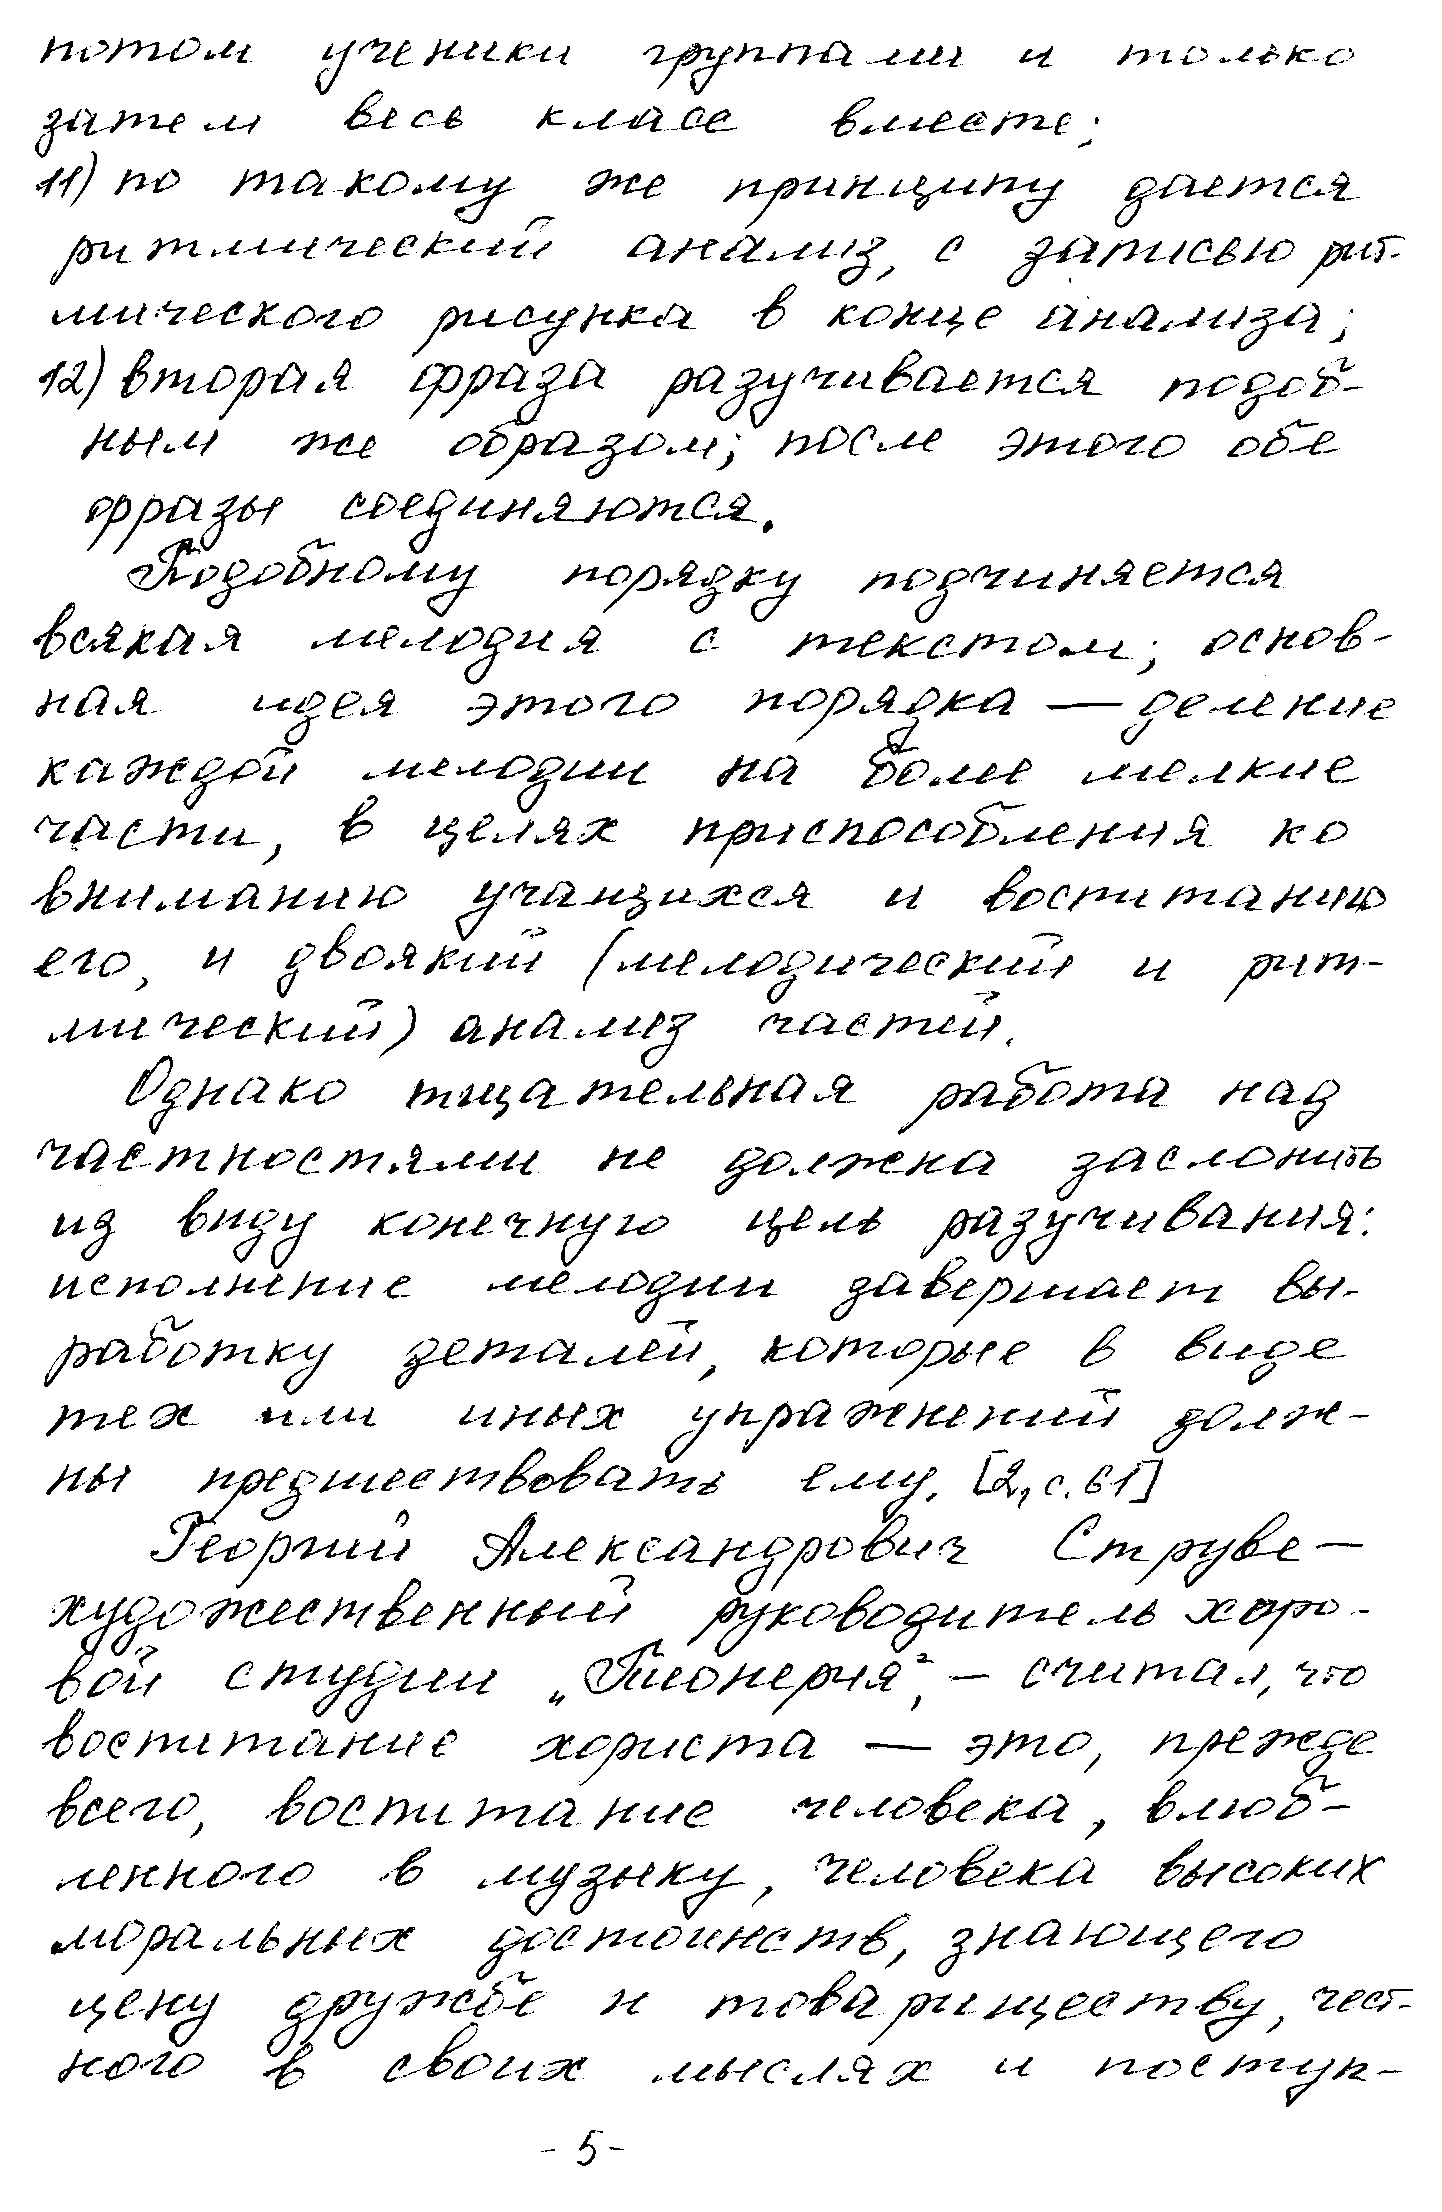 потом ученики группами и только
затем весь класс вместе;
11) по такому же принципу дается
ритмический анализ, с записью рит-
мического рисунка в конце анализа;
12) вторая фраза разучивается подоб-
ным же образом; после этого обе
фразы соединяются.
Подобному порядку подчиняется
всякая мелодия с текстом; основ-
ная идея этого порядка — деление
каждой мелодии на более мелкие
части, в целях приспособления ко
вниманию учащихся и воспитанию
его, и двоякий (мелодический и рит-
мический) анализ частей.
Однако тщательная работа над
частностями не должна заслонить
из виду конечную цель разучивания:
исполнение мелодии завершает вы-
работку деталей, которые в виде
тех или иных упражнений долж-
ны предшествовать ему. [2, с. 61]
Георгий Александрович Струве –
художественный руководитель хоро-
вой студии „Пионерия", – считал, что
воспитание хориста — это, прежде
всего, воспитание человека, влюб-
ленного в музыку, человека высоких
моральных достоинств, знающего
цену дружбе и товариществу, чест-
ного в своих мыслях и поступ-
- 5 -